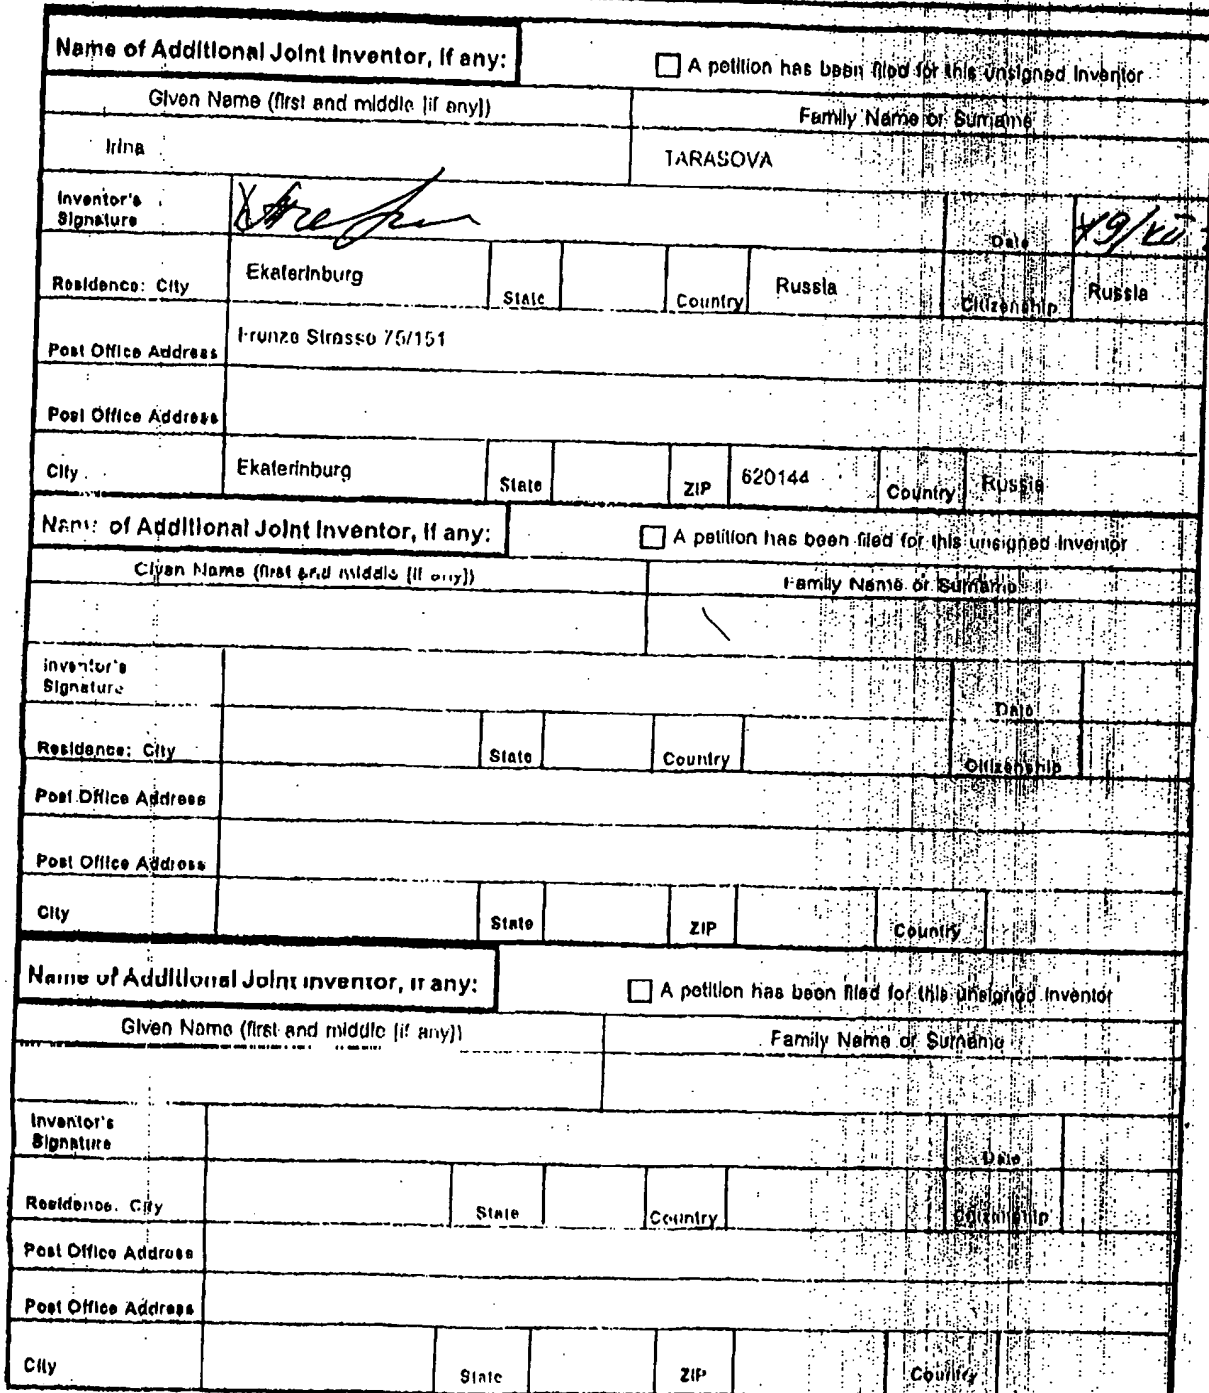 Name of Additional Joint Inventor, if any: ☐ A petition has been filed for this unsigned inventor
Given Name (first and middle [if any]) Family Name or Surname
Irina TARASOVA
Inventor's
Signature Date
Residence: City Ekaterinburg State Country Russia Citizenship Russia
Post Office Address Frunze Strasse 75/151
Post Office Address
City Ekaterinburg State ZIP 620144 Country Russia
Name of Additional Joint Inventor, if any: ☐ A petition has been filed for this unsigned inventor
Given Name (first and middle [if any]) Family Name or Surname
Inventor's
Signature Date
Residence: City State Country Citizenship
Post Office Address
Post Office Address
City State ZIP Country
Name of Additional Joint Inventor, if any: ☐ A petition has been filed for this unsigned inventor
Given Name (first and middle [if any]) Family Name or Surname
Inventor's
Signature Date
Residence: City State Country Citizenship
Post Office Address
Post Office Address
City State ZIP Country